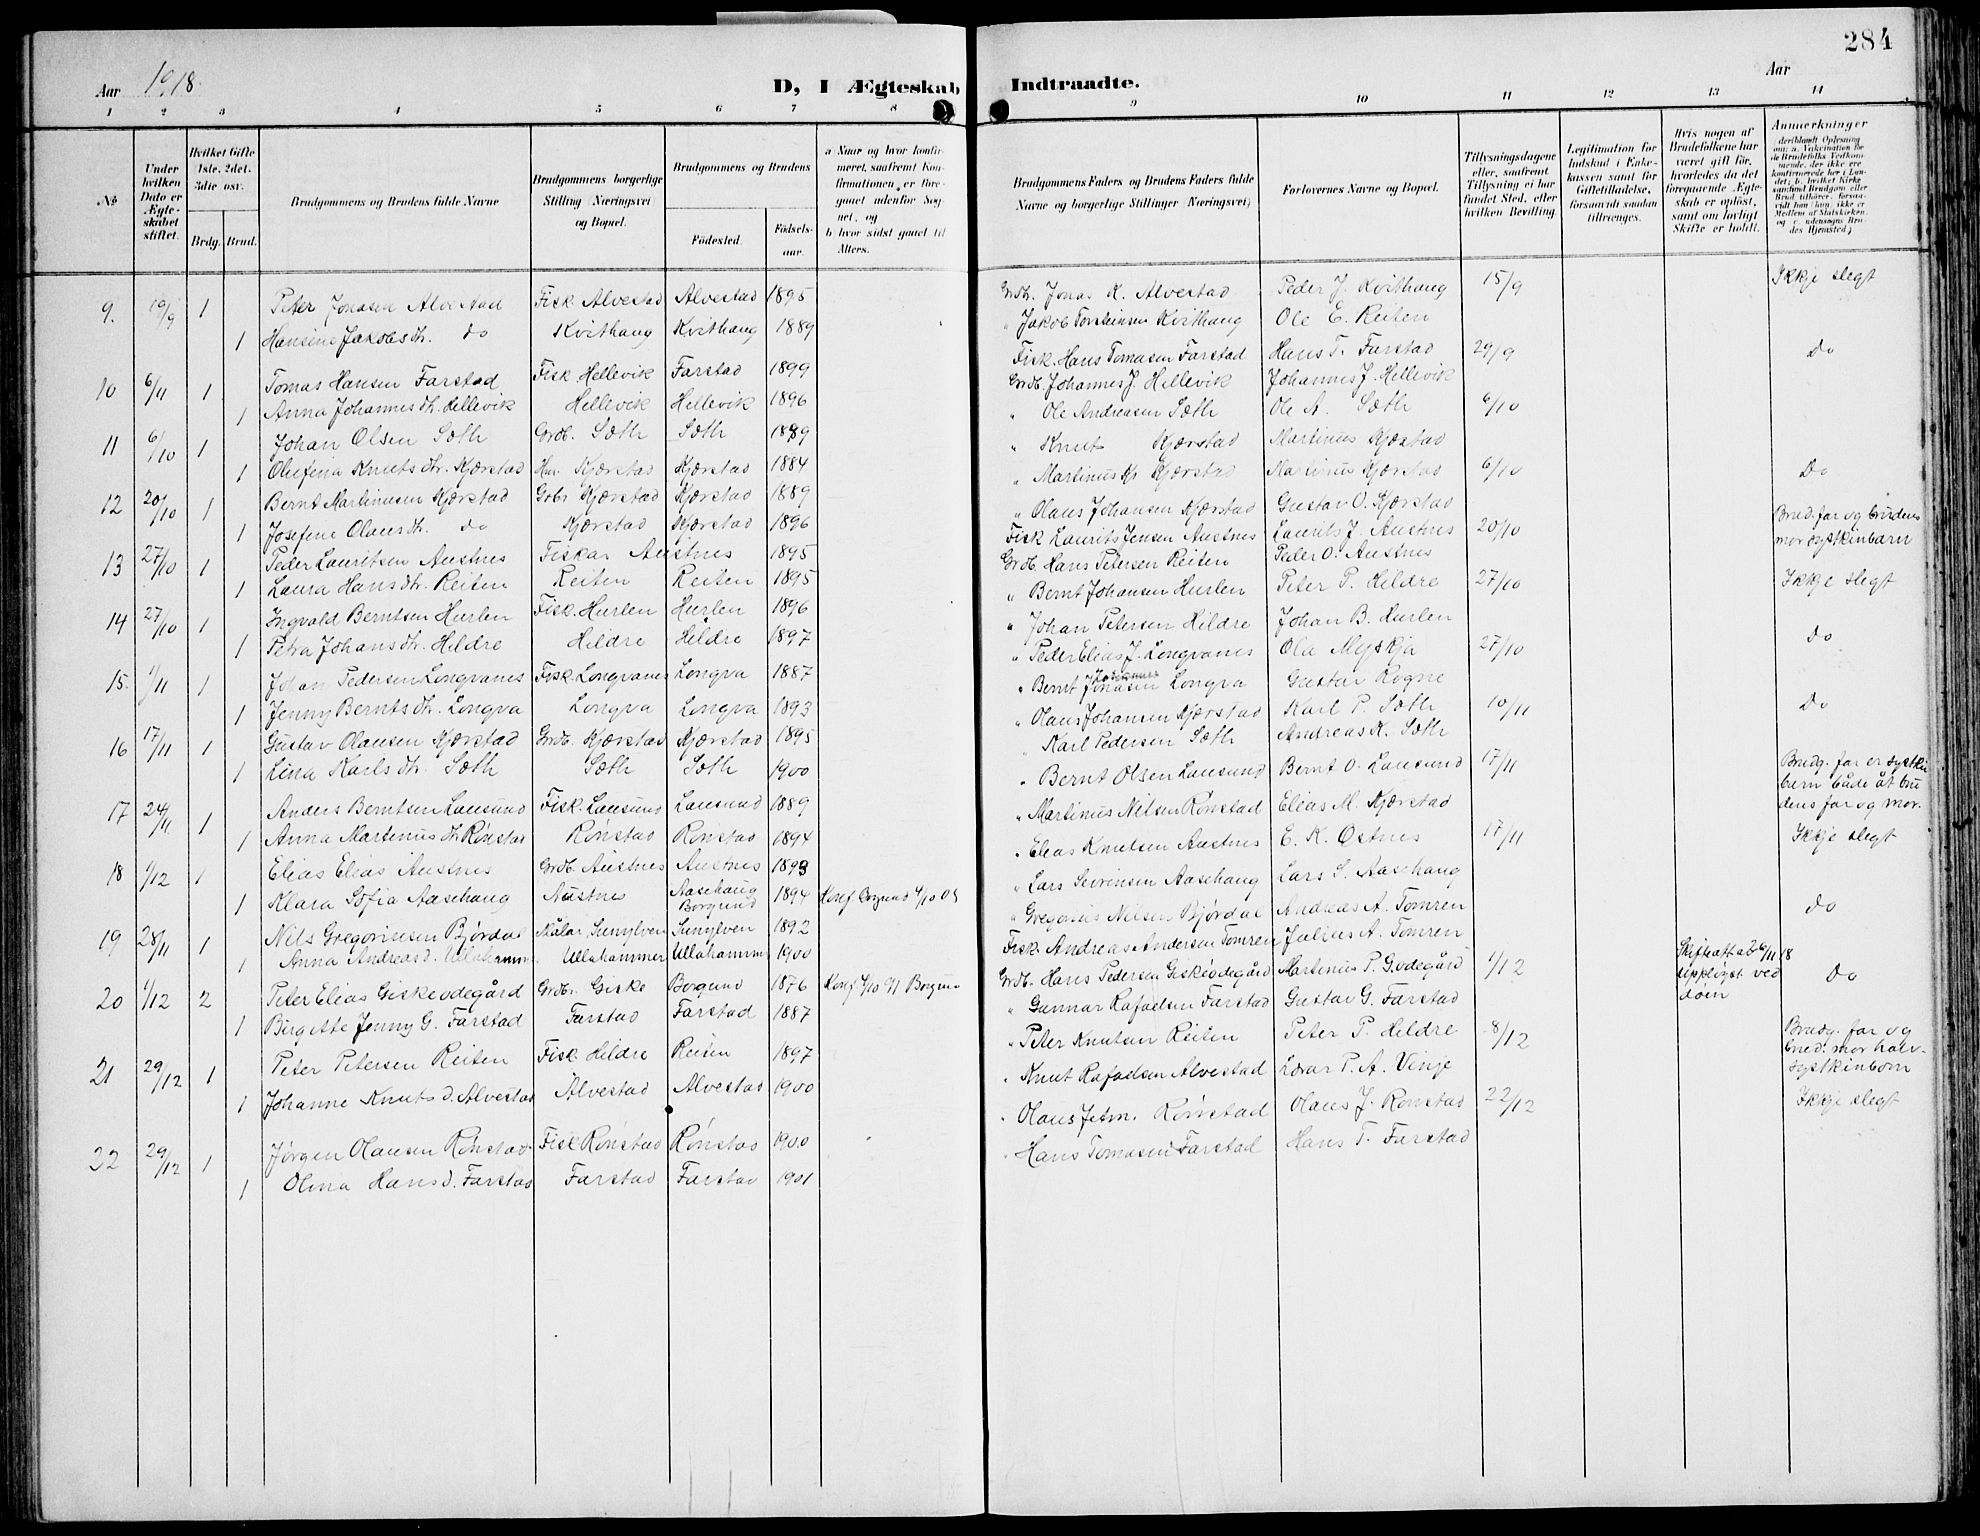 284
Aar 1918.
D, I Ægteskab Indtraadte.
Aar
1 2 3 4 5 6 7 8 9 10 11 12 13 14
№
Under hvilken Dato er Ægteskabet stiftet.
Hvilket Gifte 1ste, 2det, 3die osv.
Brdg. Brud.
Brudgommens og Brudens fulde Navne
Brudgommens borgerlige Stilling Næringsvei og Bopæl.
Brudgommens og Brudens
Fødested.
Fødselsaar.
a Naar og hvor konfirmeret, saafremt Konfirmationen er foregaaet udenfor Sognet, og
b hvor sidst gaaet til Alters.
Brudgommens Faders og Brudens Faders fulde Navne og borgerlige Stillinger (Næringsvei)
Forlovernes Navne og Bopæl.
Tillysningsdagene eller, saafremt Tillysning ei har fundet Sted, efter hvilken Bevilling.
Legitimation for Indskud i Enkekassen samt for Giftetilladelse, forsaavidt saadan tiltrænges.
Hvis nogen af Brudefolkene har været gift før, hvorledes da det foregaaende Ægteskab er opløst, samt om lovligt Skifte er holdt.
Anmerkninger
9. 19/9 1 Peter Jonasen Alvestad Fisk Alvestad Alvestad 1895 Grdb. Jonas K. Alvestad Peder J. Kvithaug 15/9 Ikkje slegt
1 Hansine Jakobsdtr. do Kvithaug Kvithaug 1889 " Jakob Torsteinsen Kvithaug Ole E. Reiten
10 6/11 1 Tomas Hansen Farstad Fisk Hellevik Farstad 1899 Fisk. Hans Tomasen Farstad Hans T. Farstad 29/9 do
1 Anna Johannesdtr. Hellevik Hellevik Hellevik 1896 Grdb. Johannes J. Hellevik Johannes J. Hellevik
11 6/10 1 Johan Olsen Sæth Grdb. Sæth Sæth 1889 " Ole Andreasen Sæth Ole A. Sæth 6/10
1 Olufina Knutsdtr. Kjærstad Kjærstad Kjærstad 1884 " Knut Kjærstad Martinus Kjærstad
12 20/10 1 Bernt Martinusen Kjærstad Grbr Kjærstad Kjærstad 1889 " Martinus Kjærstad Martinus Kjærstad 6/10 Do
1 Josefine Olausdtr. do Kjærstad Kjærstad 1896 " Olaus Johansen Kjærstad Gustav O. Kjærstad
13 27/10 1 Peder Lauritsen Austnes Fiskar Austnes 1895 Fisk Laurits Jensen Austnes Laurits J. Austnes 20/10 Brud. far og brudens mor systkinbarn
1 Laura Hansdtr. Reiten Reiten Reiten 1895 Grdb. Hans Petersen Reiten Peder O. Austnes
14 27/10 1 Ingvald Berntsen Hurlen Fisk. Hurlen Hurlen 1896 " Bernt Johansen Hurlen Peter P. Hildre 27/10 Ikkje slegt
1 Petra Johansdtr. Hildre Hildre Hildre 1897 " Johan Petersen Hildre Johan B. Hurlen
15. 1/11 1 Johan Pedersen Longvanes Fisk. Longvanes Longva 1887 " Peder Elias J. Longvanes Ola Myskja 27/10 do
1 Jenny Berntsdtr. Longva Longva Longva 1893 " Bernt Jonasen Longva Gustav Rogne
16 17/11 1 Gustav Olausen Kjærstad Grdb. Kjærstad Kjærstad 1895 " Olaus Johansen Kjærstad Karl P. Sæth 10/11 Do
1 Lina Karlsdtr. Sæth Sæth Sæth 1900 " Karl Pedersen Sæth Andreas K. Sæth
17 24/11 1 Anders Berntsen Lausund Fisk. Lausund Lausund 1889 " Bernt Olsen Lausund Bernt O. Lausund 17/11 Brudg. far er systkinbarn både åt brudens far og mor.
1 Anna Martinusdtr Rønstad Rønstad Rønstad 1894 " Martinus Nilsen Rønstad Elias M. Kjærstad
18 1/12 1 Elias Elias Austnes Grdb. Austnes Austnes 1893 " Elias Knutsen Austnes E. K. Østnes 17/11 Ikkje slegt
1 Klara Sofia Aasehaug Austnes Aasehaug Borgund 1894 Konf Borgund 1/10 09 " Lars Sevrinsen Aasehaug Lars S. Aasehaug
19 28/11 1 Nils Gregoriusen Bjørdal Målar, Sunylven Sunylven 1892 " Gregorius Nilsen Bjørdal Andreas A. Tomren do
1 Anna Andreasd. Ullahammer Ullahammer Ullahammer 1900 Fisk. Andreas Andersen Tomren Julius A. Tomren
20 1/12 2 Peter Elias Giskeødegård Grdbr. Giske Borgund 1876 Konf 4/10 91 Borgund Grdb. Hans Pedersen Giskeødegård Martinus P. Godegård 1/12 Skifteatt a 26/11 18 uppløyst ved døin Do
1 Birgitte Jenny G. Farstad Farstad Farstad 1887 " Gunnar Rafaelsen Farstad Gustav G. Farstad
21 29/12 1 Peter Petersen Reiten Fisk. Hildre Reiten 1897 " Peter Knutsen Reiten Peter P. Hildre 8/12 Brudg. far og bred: mor halvsystkinborn
1 Johanne Knutsd. Alvestad Alvestad Alvestad 1900 " Knut Rafaelsen Alvestad P. A. Vinje
22 29/12 1 Jørgen Olausen Rønstad Fisk Rønstad Rønstad 1900 " Olaus Rønstad Olaus J. Rønstad 22/12 Ikkje slegt
1 Olina Hansd. Farstad Farstad Farstad 1901 " Hans Tomasen Farstad Hans T. Farstad